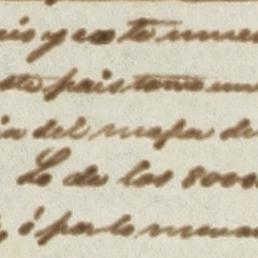 is y esta nues
este pais tome un
ia del mapa de
Lo de los 8000
, ó por lo menos